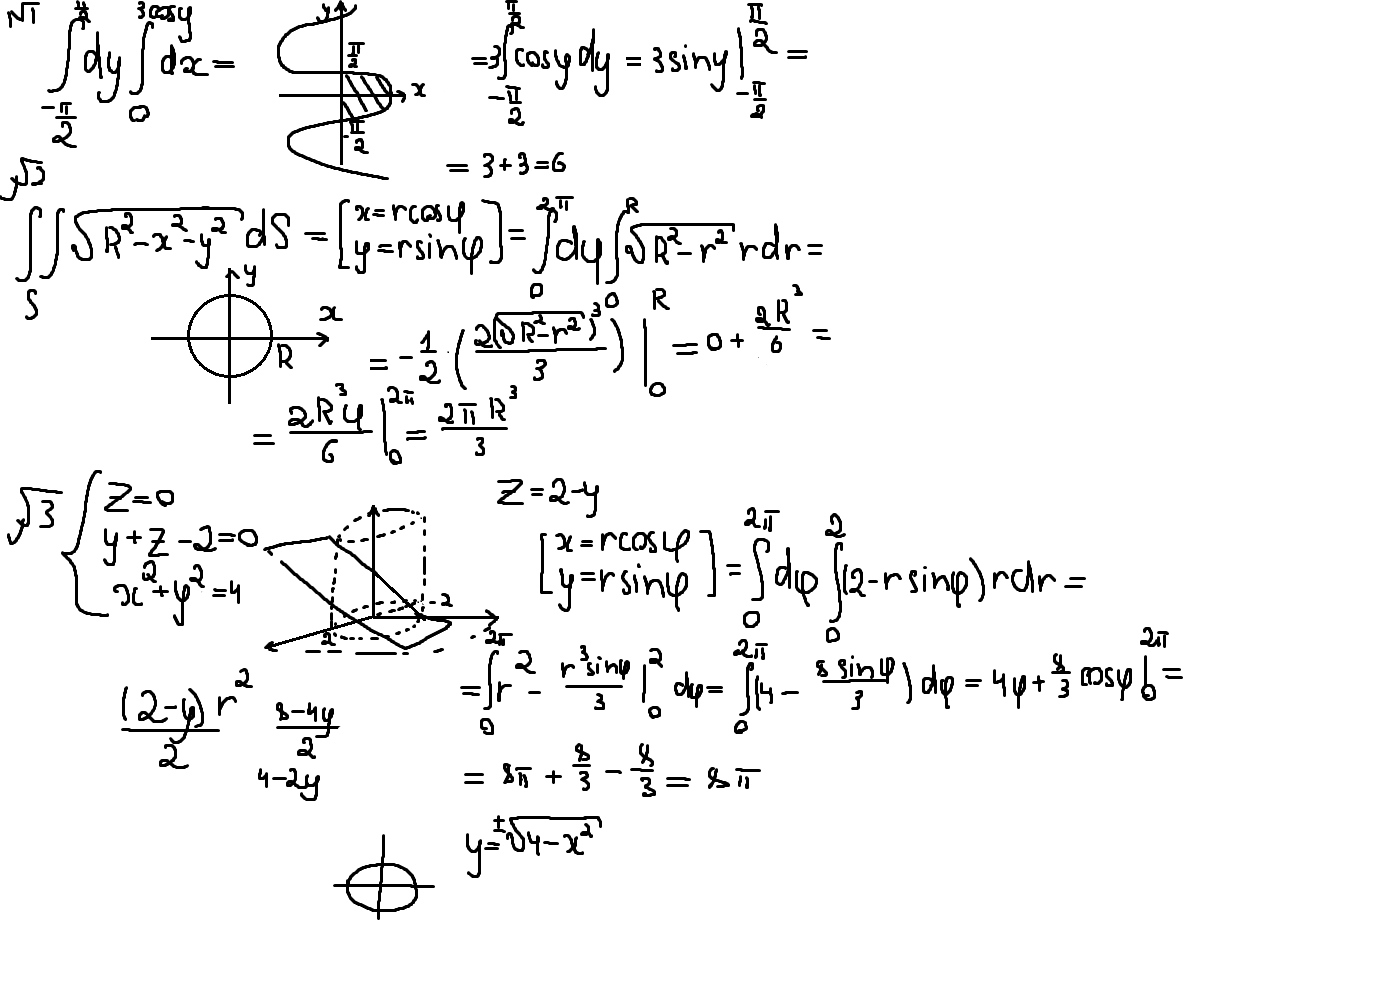 √1
∫_{-π/2}^{π/2} dy ∫_0^{3cosy} dx =
y
π/2
x
-π/2
= 3∫_{-π/2}^{π/2} cosy dy = 3siny |_{-π/2}^{π/2} =
= 3+3=6
√3
∫∫_S √(R²-x²-y²) dS = [x=rcosφ y=rsinφ] = ∫_0^{2π} dφ ∫_0^R √(R²-r²) rdr =
y
x
R
= -1/2 (2(√(R²-r²))³/3) |_0^R = 0 + 2R³/6 =
= 2R³φ/6 |_0^{2π} = 2πR³/3
√3
{ z=0
y+z-2=0
x²+y²=4
2
-2
z=2-y
[x=rcosφ y=rsinφ] = ∫_0^{2π} dφ ∫_0^2 (2-rsinφ) rdr =
= ∫_0^{2π} r² - r³sinφ/3 |_0^2 dφ = ∫_0^{2π} (4 - 8sinφ/3) dφ = 4φ + 8/3 cosφ |_0^{2π} =
(2-y)r²/2
8-4y/2
4-2y
= 8π + 8/3 - 8/3 = 8π
y=±√(4-x²)